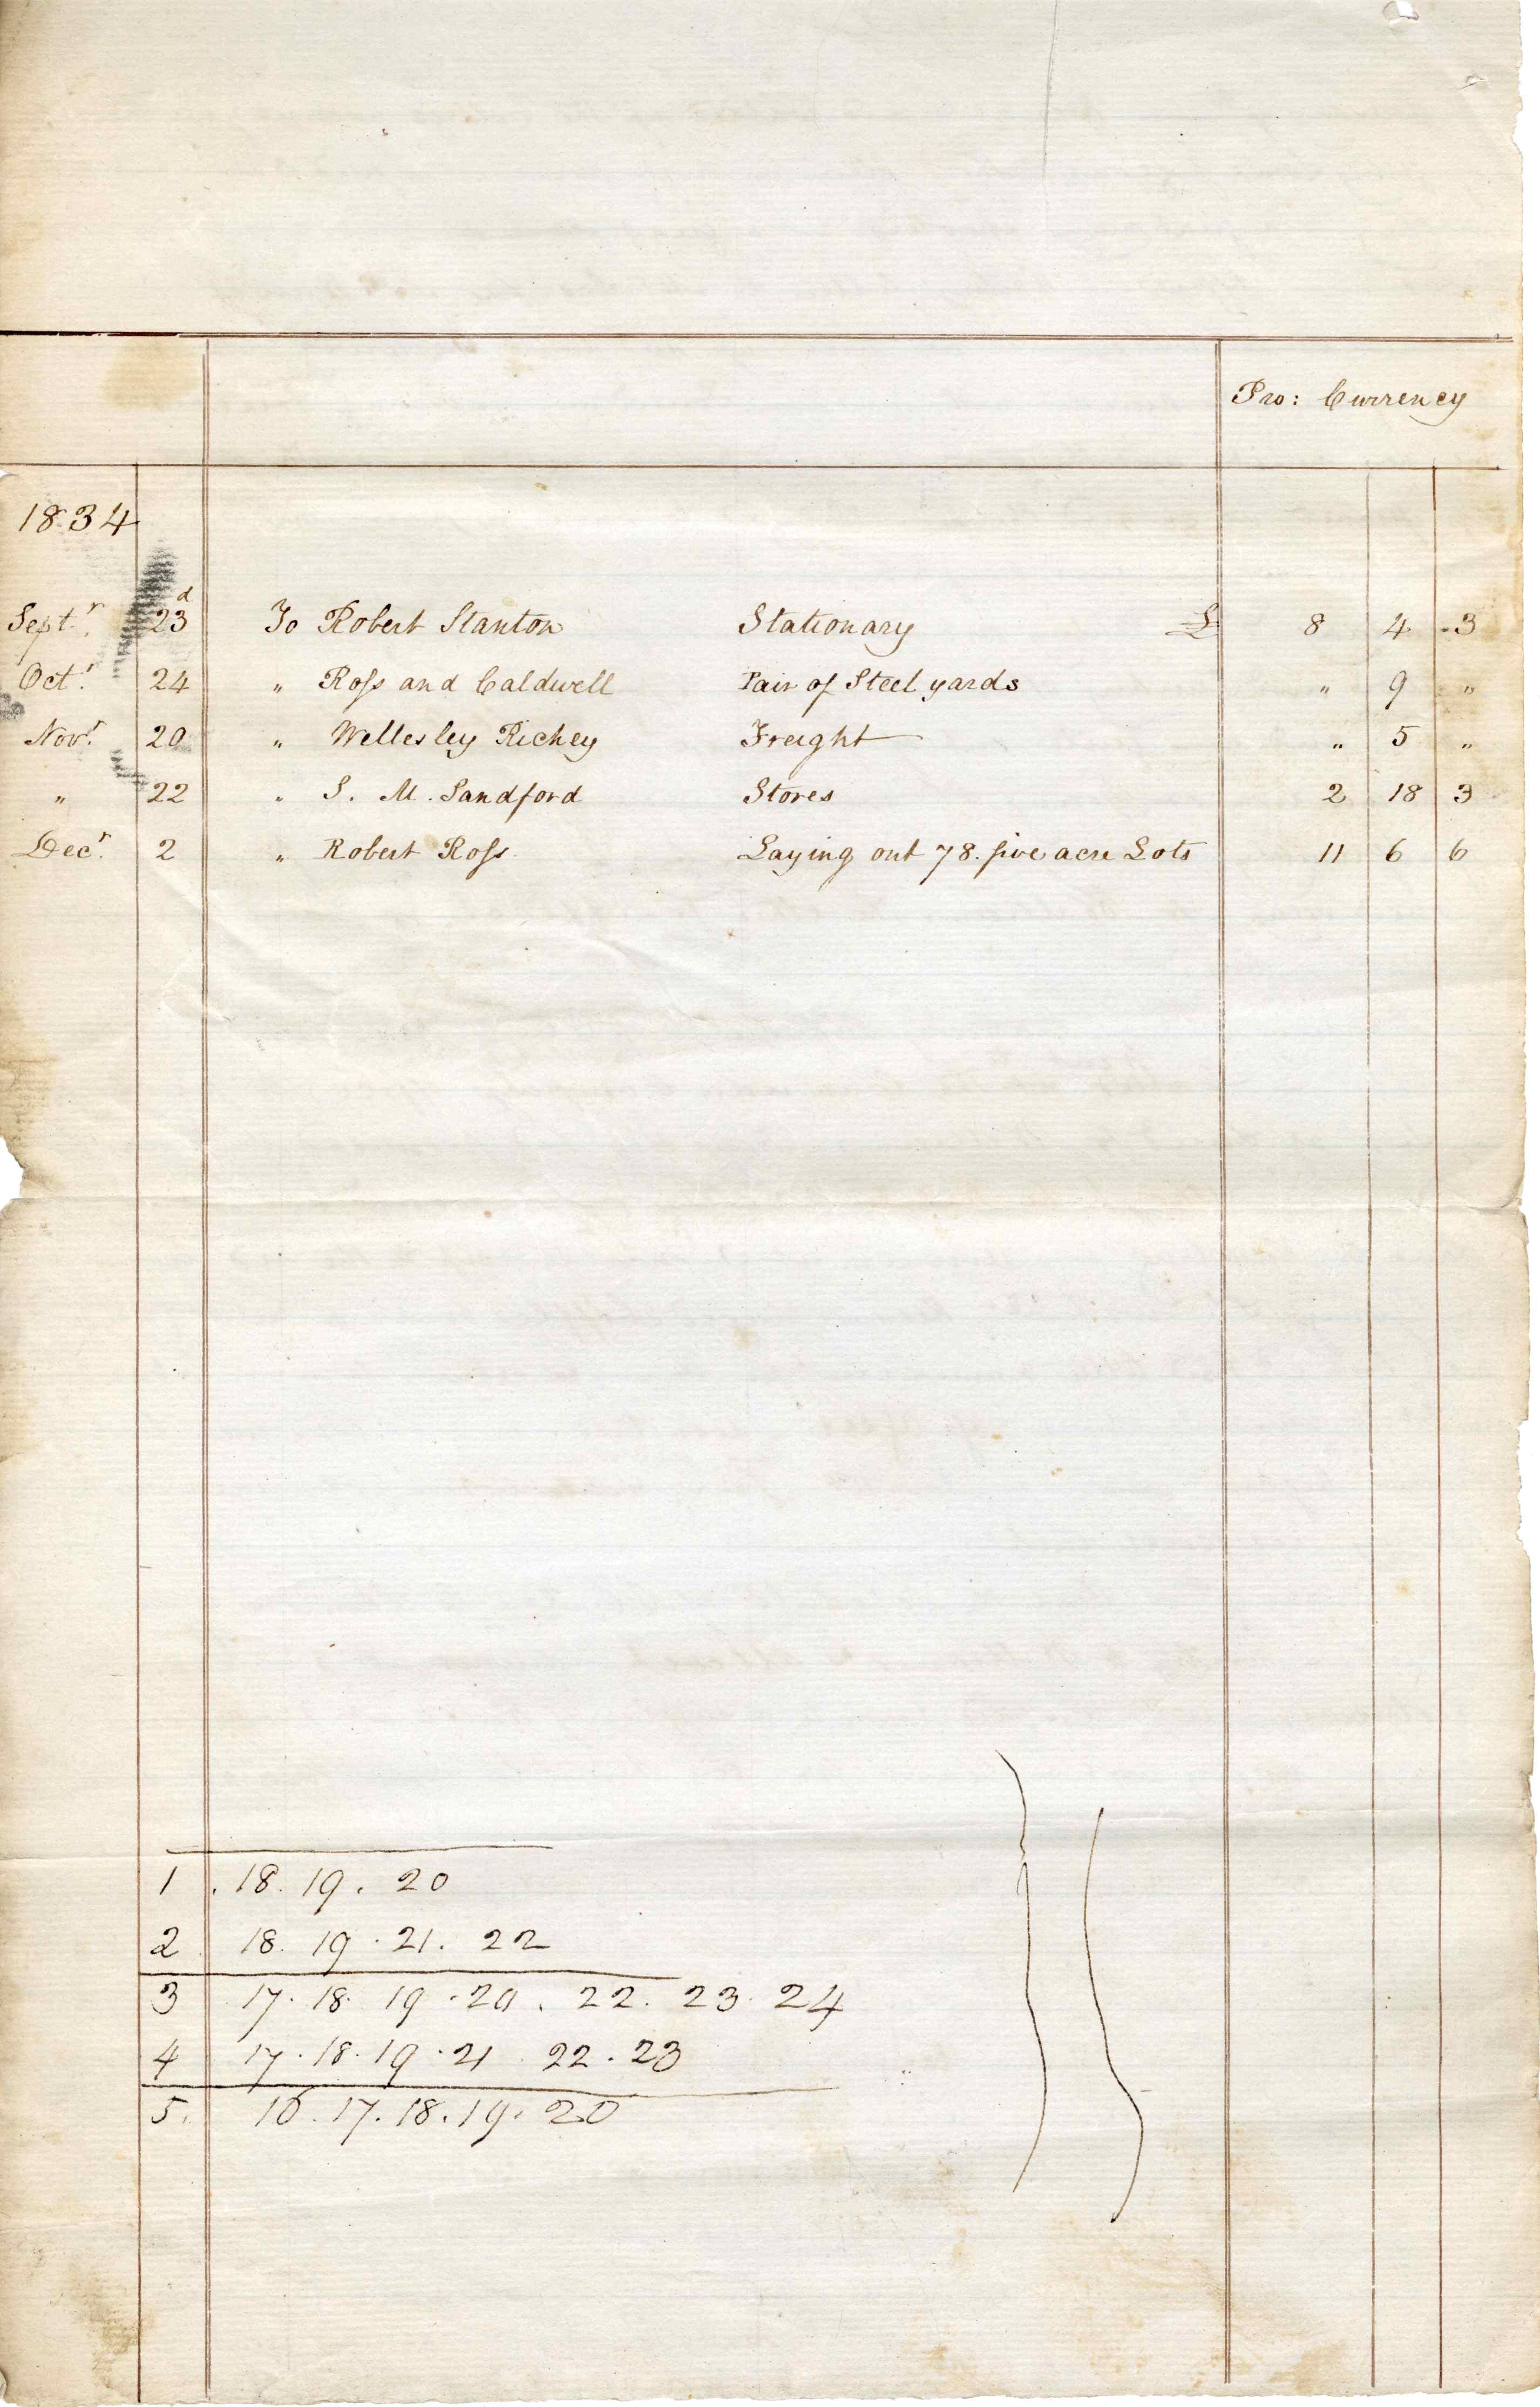 Pro: Currency
1834
Septr. 23d To Robert Stanton Stationary £ 8 4 3
Octr. 24 " Ross and Caldwell Pair of Steel yards " 9 "
Novr. 20 " Wellesley Richey Freight " 5 "
" 22 " S. M. Sandford Stores 2 18 3
Decr. 2 " Robert Ross Laying out 78. five acre Lots 11 6 6
1 . 18. 19. 20
2 18. 19. 21. 22
3 17. 18. 19. 20. 22. 23. 24
4 17. 18. 19. 21. 22. 23
5. 16. 17. 18. 19. 20